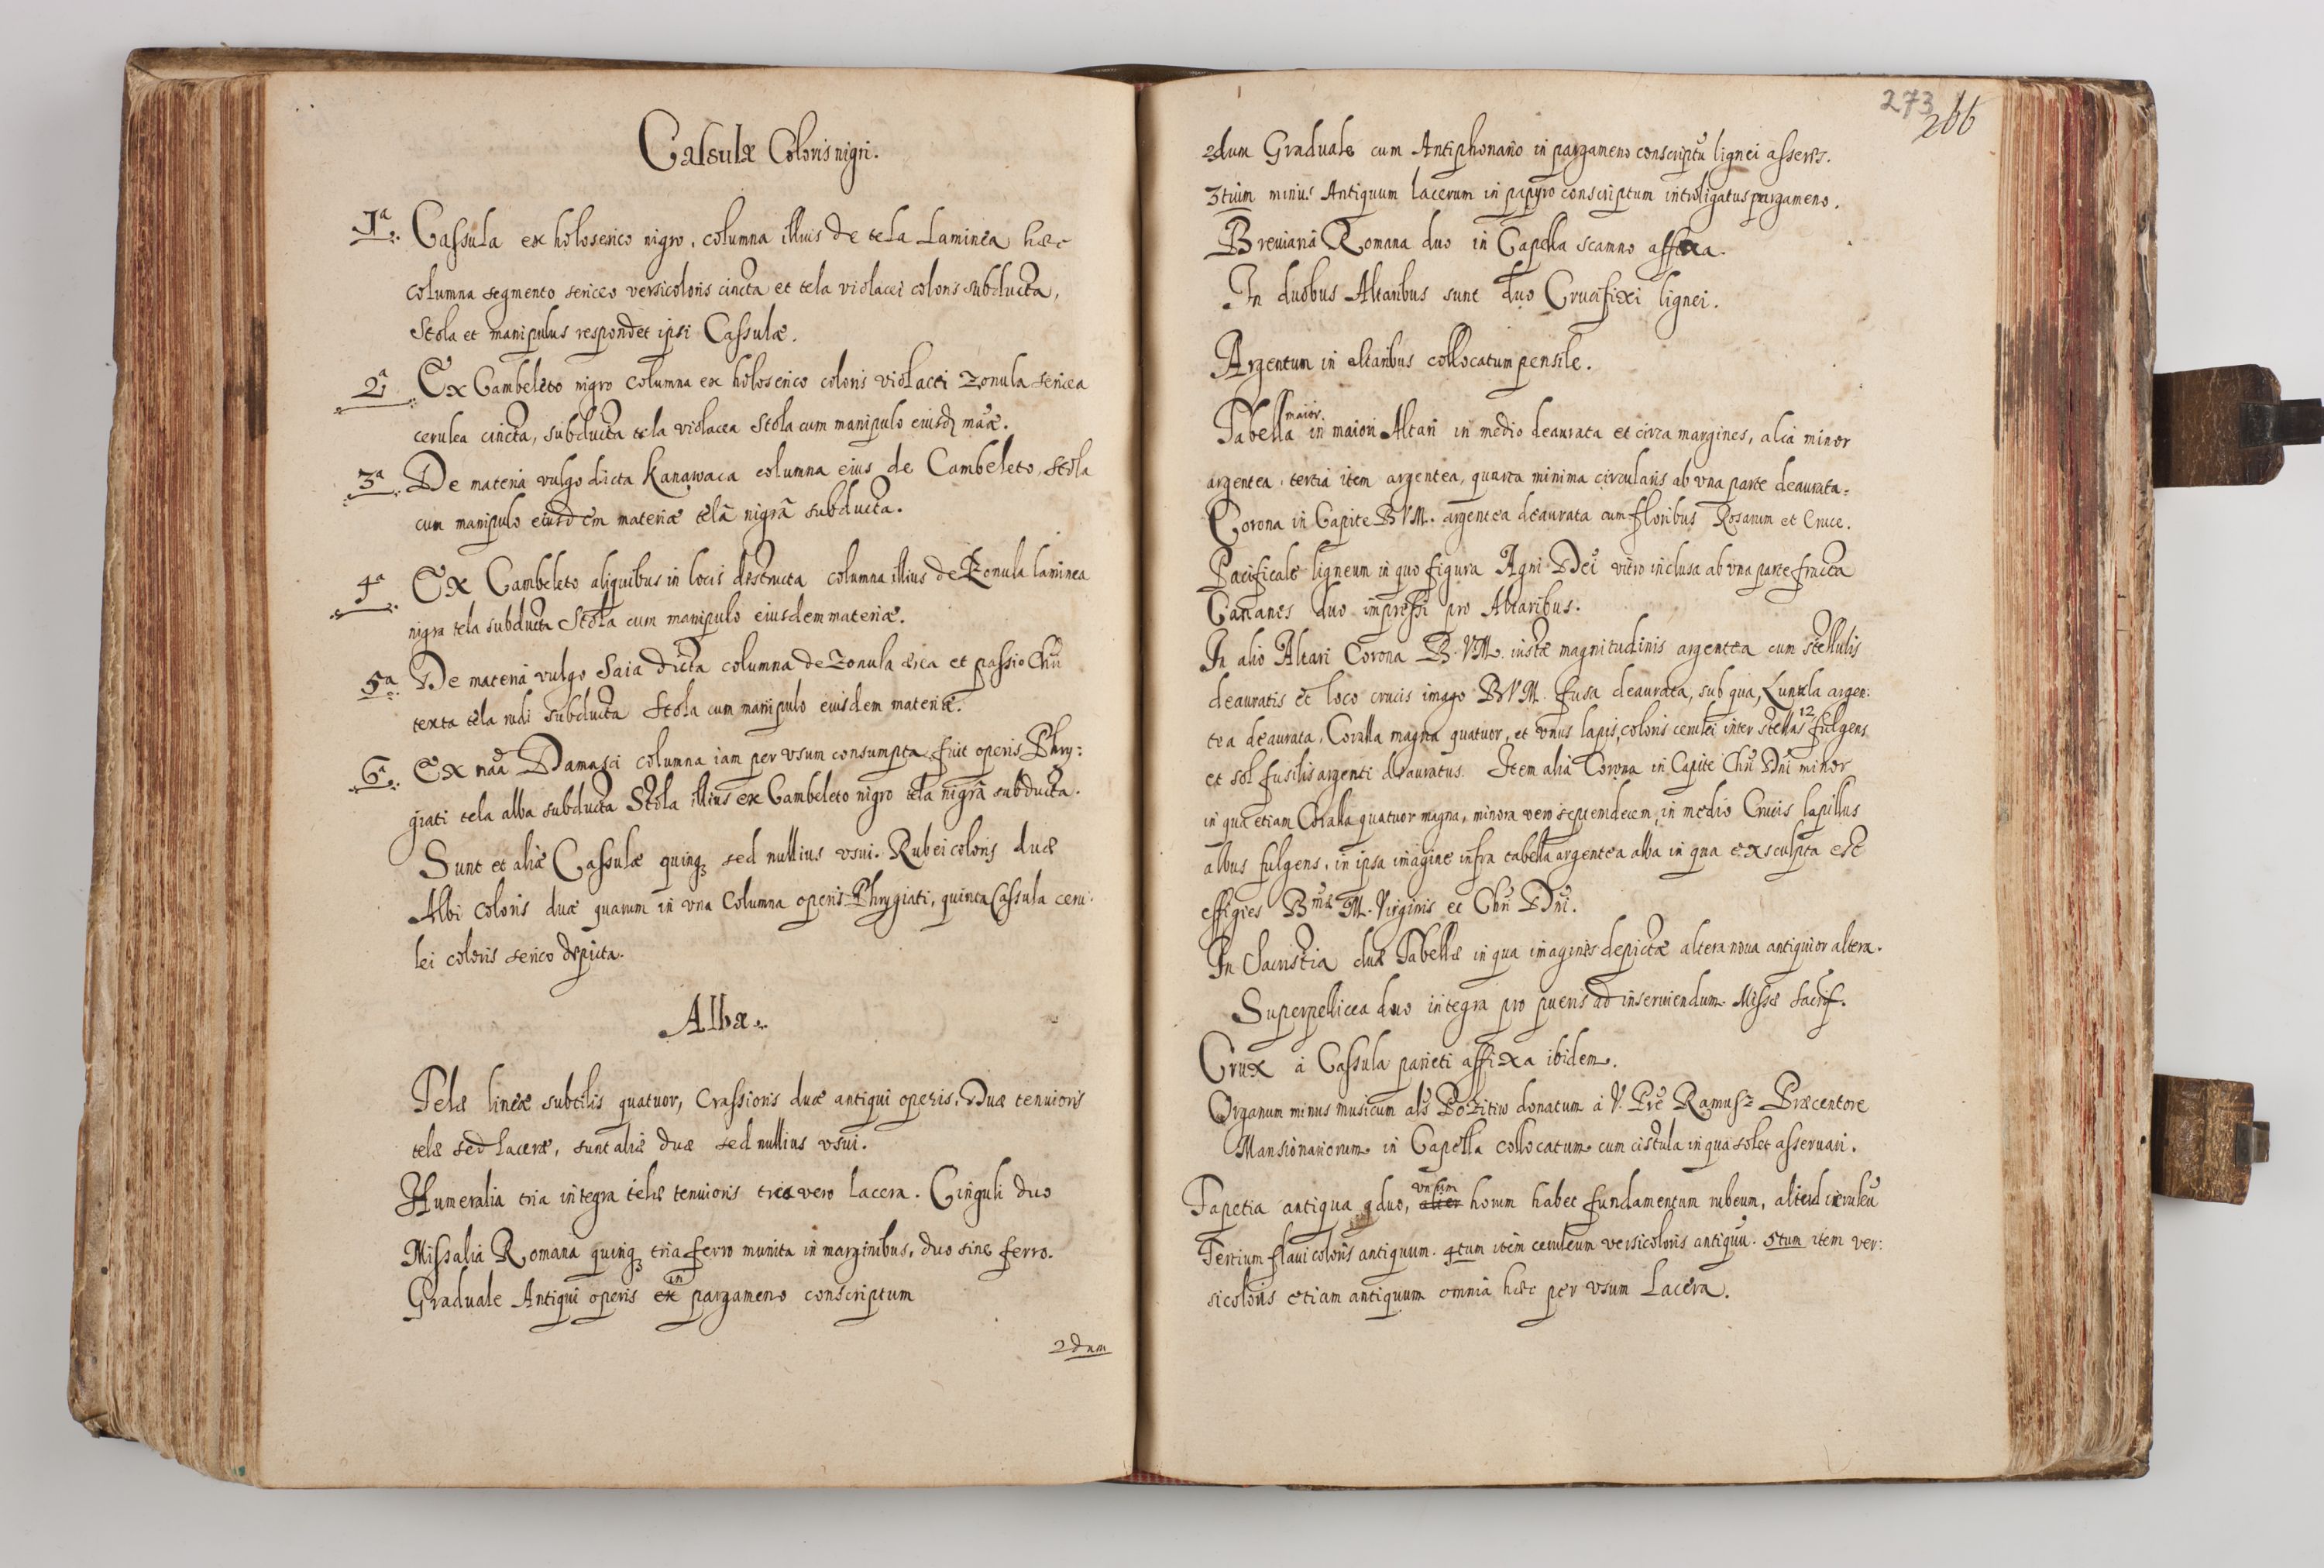 Casulæ Coloris nigri.
1ª Cassula ex holoserico nigro, columna illius de tela Laminea hæc
columna segmento sericeo versicoloris cincta et tela violacei coloris subducta,
Stola et manipulus respondet ipsi Cassulæ.
2ª Ex Cambeleto nigro columna ex holoserico coloris violacei Zonula sericea
cerulea cincta, subducta tela violacea Stola cum manipulo eiusd mãæ.
3ª De materia vulgo dicta Kanawaca columna eius de Cambeleto, Stola
cum manipulo eiusdem materiæ telâ nigrâ subducta.
4ª Ex Cambeleto aliquibus in locis destructa columna illius de Zonula laminea
nigra tela subducta Stola cum manipulo eiusdem materiæ.
5ª De materia vulgo Saia dicta columna de Zonula ærea et passio Chri
texta tela rudi subducta Stola cum manipulo eiusdem materiæ.
6ª Ex mãa Damasci columna iam per vsum consumpta fuit operis Phry:
giati tela alba subducta Stola illius ex Cambeleto nigro tela nigrâ subducta.
Sunt et aliæ Cassulæ quinq; sed nullius vsui. Rubei coloris duæ
Albi coloris duæ quarum in vna Columna operis Phrygiati, quinta Cassula ceru:
lei coloris serico depicta.
Albæ.
Telæ lineæ subtilis quatuor, Crassioris duæ antiqui operis, Duæ tenuioris
telæ sed laceræ, sunt aliæ duæ sed nullius vsui.
Humeralia tria integra telæ tenuioris tria vero lacera. Cinguli duo
Missalia Romana quinq; tria ferro munita in marginibus, duo sine ferro.
Graduale Antiqui operis ex in pargameno conscriptum
2dum
273 266
2dum Graduale cum Antiphonario in pargameno conscriptũ lignei asseris.
3tium minus Antiquum lacerum in papyro conscriptum introligatus pargameno.
Breuiaria Romana duo in Capella scamno affixa.
In duobus Altaribus sunt duo Crucifixi lignei.
Argentum in altaribus collocatum pensile.
Tabella maior in maiori Altari in medio deaurata et circa margines, alia minor
argentea, tertia item argentea, quarta minima circularis ab vna parte deaurata.
Corona in Capite B V M. argentea deaurata cum floribus Rosarum et Cruce.
Pacificale ligneum in quo figura Agni Dei vitro inclusa ab vna parte fracta
Canones duo impressi pro Altaribus.
In alio Altari Corona B. VM. iustæ magnitudinis argentea cum stellulis
deauratis et loco crucis imago BVM. fusa deaurata, sub qua, Lunula argen:
tea deaurata, Coralla magna quatuor, et vnus lapis, coloris cerulei inter stellas 12 fulgens
et sol fusilis argenti deauratus. Item alia Corona in Capite Chri Dni minor
in qua etiam Coralla quatuor magna, minora vero septemdecem, in medio Crucis lapillus
albus fulgens, in ipsa imagine infra tabella argentea alba in qua exsculpta est
effigies Bmæ M. Virginis et Chri Dni.
In Sacristia duæ Tabellæ in qua imagines depictæ altera noua antiquior altera.
Superpellicea duo integra pro pueris ad inseruiendum Missæ Sacrif.
Crux à Cassula parieti affixa ibidem.
Organum minus musicum als Pozitiw donatum à V. Pre Ramusz Præcentore
Mansionariorum in Capella collocatum cum cistula in qua solet asseruari.
Tapetia antiqua duo, alter vnum horum habet fundamentum rubeum, aliud ceruleũ
Tertium flaui coloris antiquum. 4tum item ceruleum versicoloris antiquũ. 5tum item ver:
sicoloris etiam antiquum omnia hæc per vsum Lacera.